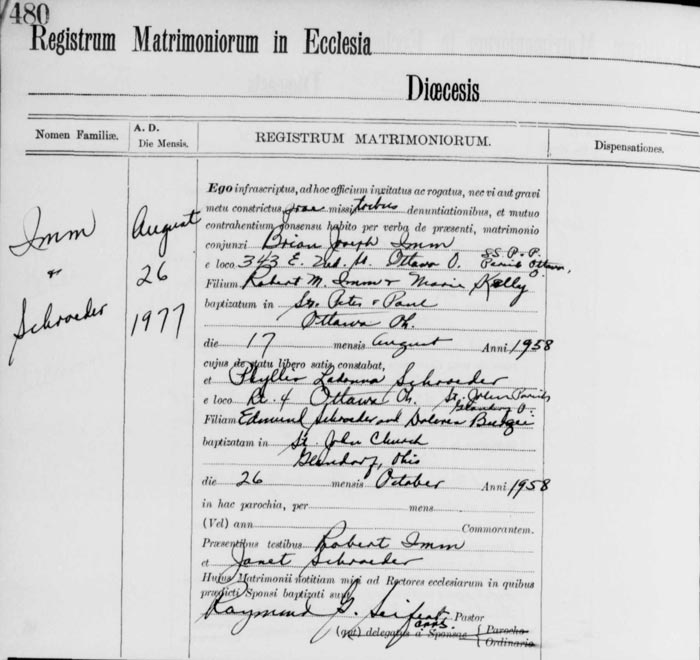 480
Registrum Matrimoniorum in Ecclesia
Diœcesis
Nomen Familiæ.
A. D.
Die Mensis.
REGISTRUM MATRIMONIORUM.
Dispensationes.
Imm
&
Schroeder
August
26
1977
Ego infrascriptus, ad hoc officium invitatus ac rogatus, nec vi aut gravi
metu constrictus missis tribus denuntiationibus, et mutuo
contrahentium consensu habito per verba de præsenti, matrimonio
conjunxi Brian Joseph Imm
SS. P. P.
e loco 343 E. 2nd. St. Ottawa O. Parish Ottawa, O.
Filium Robert M. Imm & Marie Kelly
baptizatum in Sts. Peter & Paul
Ottawa Oh.
die 17 mensis August Anni 1958
cujus de statu libero satis constabat,
et Phyllis Ladonna Schroeder
e loco Rt. 4 Ottawa Oh. St. John Parish
Glandorf O.
Filiam Edmund Schroeder and Dolores
baptizatam in St. John Church
Glandorf, Ohio
die 26 mensis October Anni 1958
in hac parochia, per mens
(Vel) ann Commorantem.
Præsentibus testibus Robert Imm
et Janet Schroeder
Hujus Matrimonii notitiam misi ad Rectores ecclesiarum in quibus
prædicti Sponsi baptizati sunt
Raymond G. Seifert Pastor
(aut) delegatus a Sponsae { Parocho
Ordinario